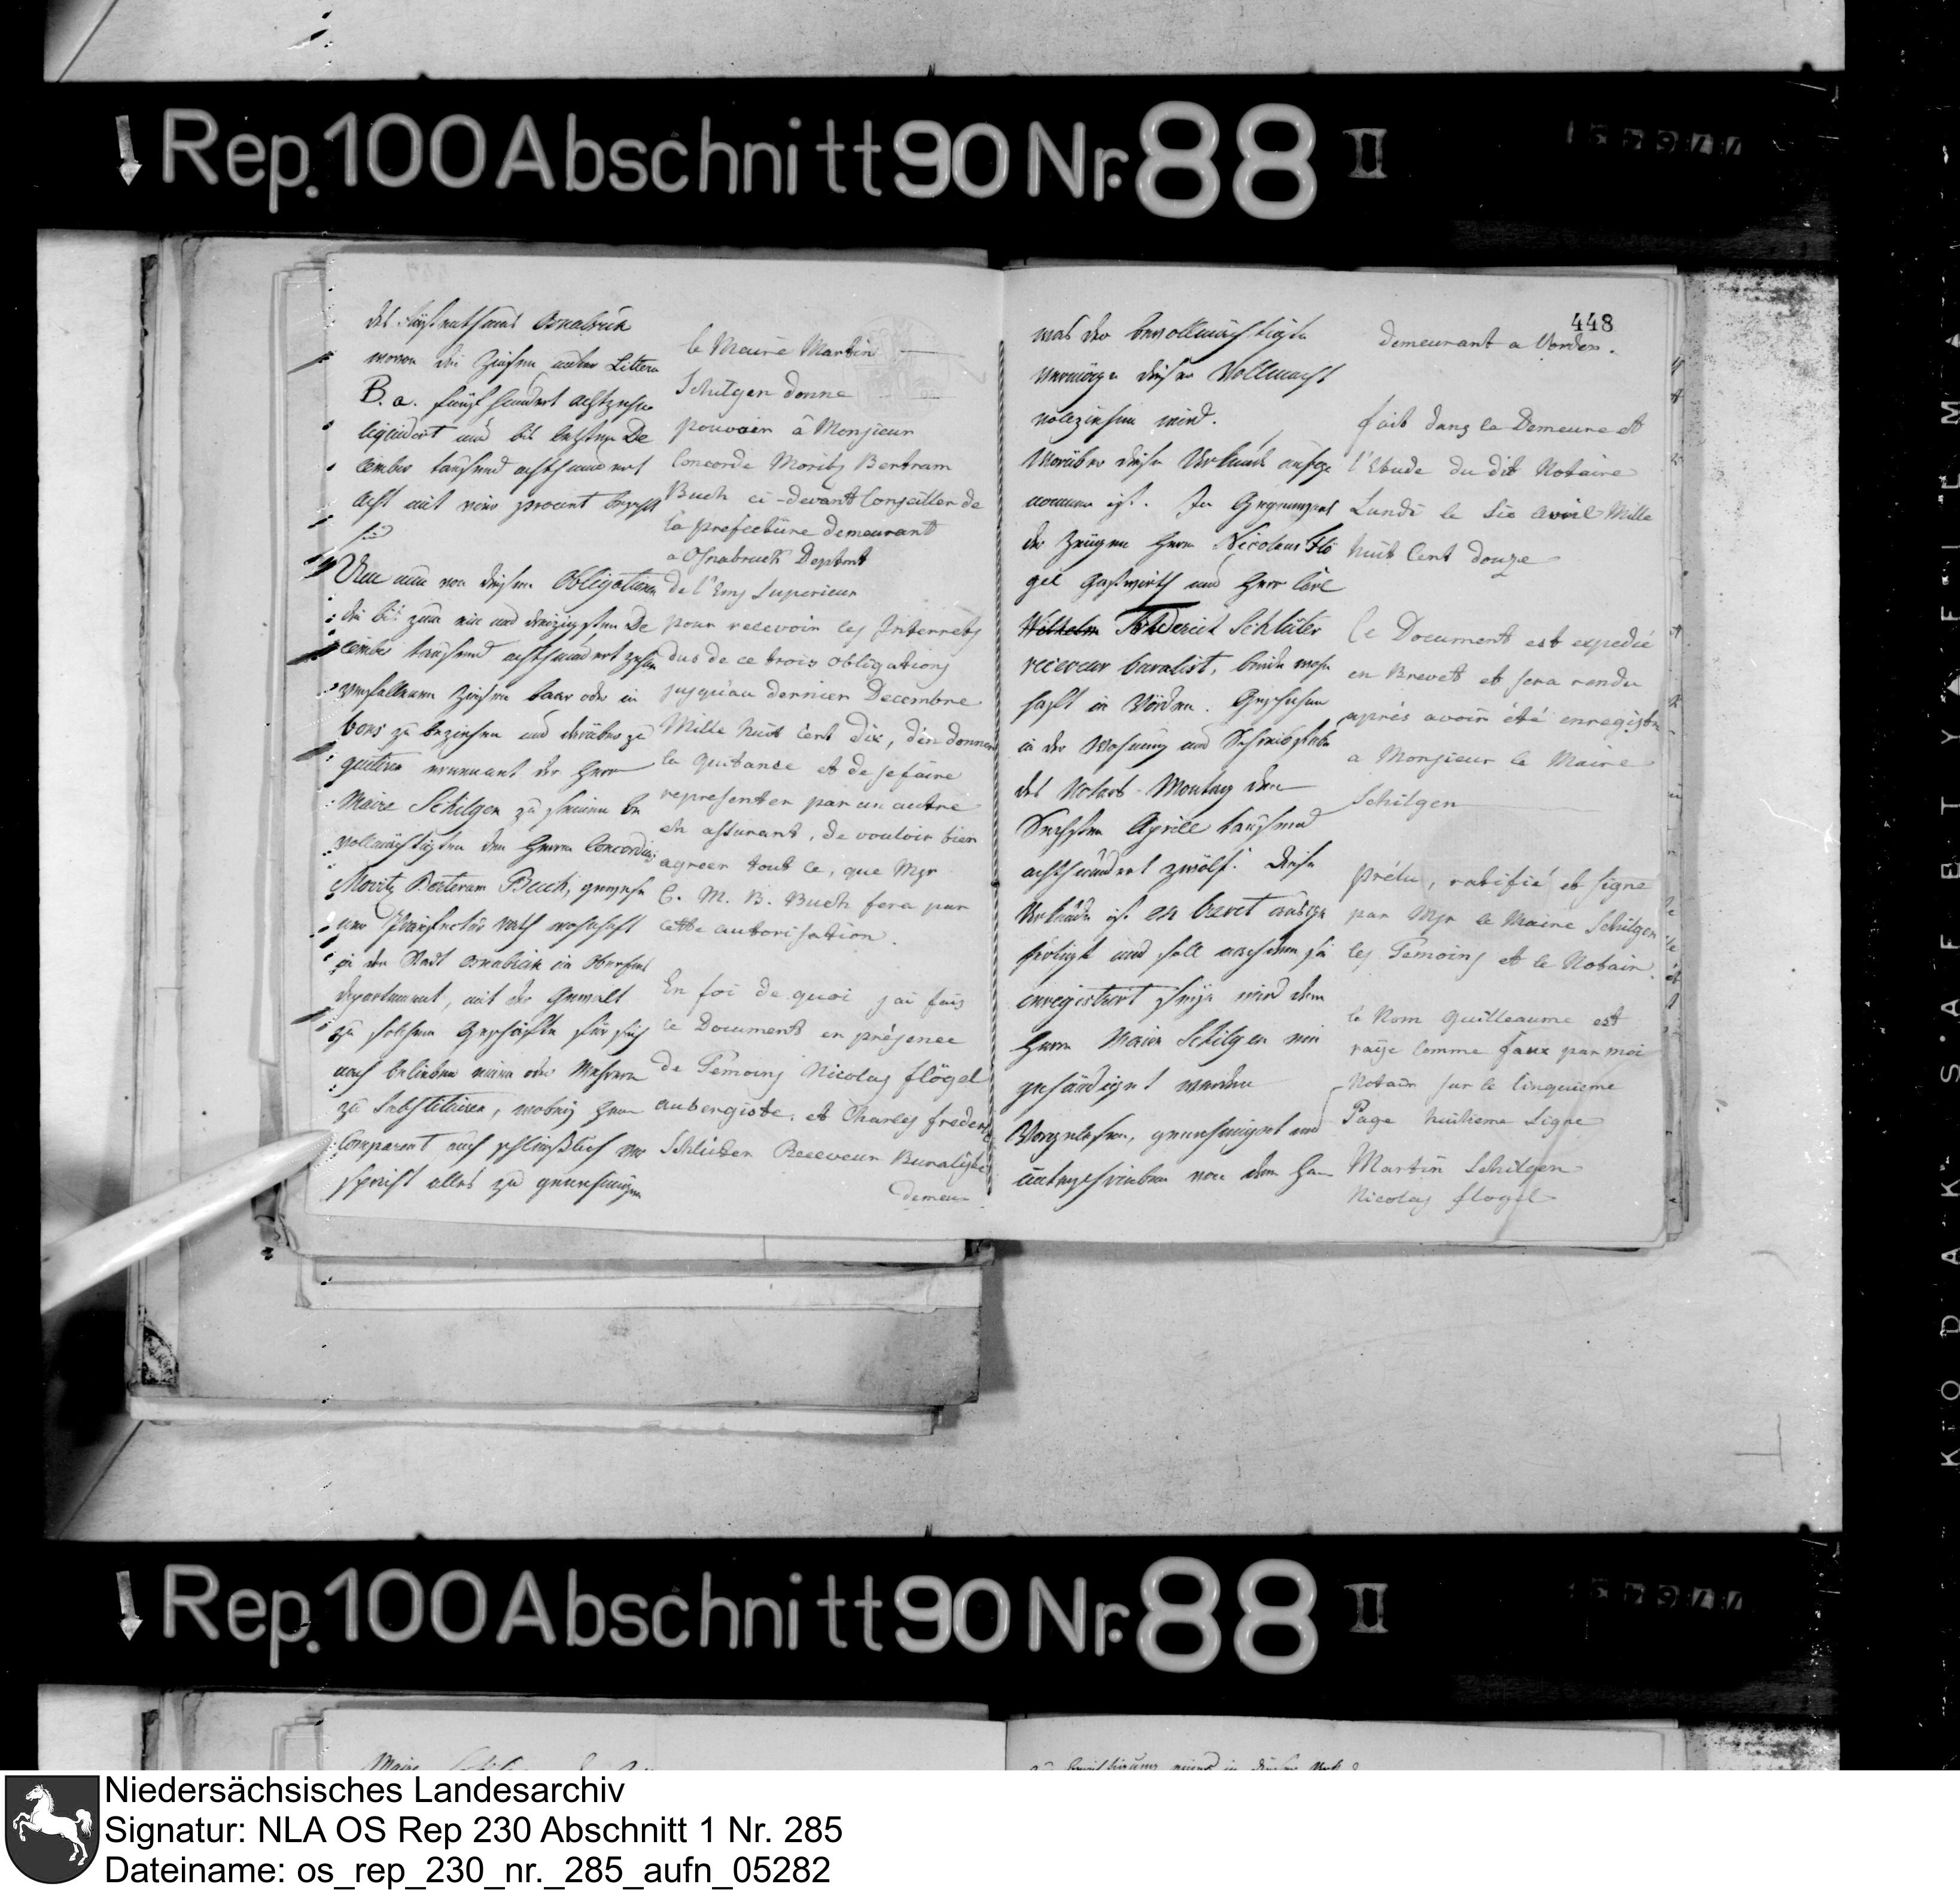 Rep. 100 Abschnitt 90 Nr. 88 II
des Stifts
Osnabrück
wovon die Zinsen unter Littera
B. a. fünf hundert achtzehn
liquidirt und bis letzten De
cember tausend achthundert
acht mit eins procent bezahlt
sind
Um nun von diesen Obligationen
die bis zum ein und dreizigsten De
cember tausend achthundert zehn
verfallenen Zinsen baar oder in
bons zu beziehen und darüber zu
quitiren ernennent der Herr
Maire Schilgen zu seinem be
vollmächtigten den Herrn Concordius
Moritz Berteram Buch, gewese
nen Präfectur Rath wohnhaft
in der Stadt Osnabrück im Oberems
departement, mit der Gewalt
zu solchem Geschäfte für sich
nach belieben einen oder Mehrere
zu Substituiren, wobey Herr
Comparent auch schließlich ver
spricht alles zu genehmigen
le Maire Martin
Schilgen donne
pouvoir à Monsieur
Concorde Moritz Bertram
Buch ci-devant Conseiller de
la prefecture demeurant
a Osnabruck Deptmt
de l'Ems Superieur
pour recevoir les Interrets
dus de ce trois obligations
jusqu'au dernier Decembre
Mille huit cent dix, d'en donner
la quitance et de se faire
representer par un autre
en assurant, de vouloir bien
agreer tout ce, que Mgr
C. M. B. Buch fera par
cette autorisation.
En foi de quoi j'ai fais
ce Document en présence
de Temoins Nicolas flögel
aubergiste. et Charles frederic
Schlüter Receveur Buraliste
demeu-
448
was der bevollmächtigte
vermöge dieser Vollmacht
volziehen wird.
Worüber diese Urkunde aufge
nommen ist. In Gegenwart
der Zeugen Herrn Nicolaus Flö
gel Gastwirth und Herr Carl
Wilhelm Friederich Schlüter
receveur buralist, beide wohn
haft in Vörden. Geschehen
in der Wohnung und Schreibstube
des Notars Montag den
Sechsten Aprill tausend
achthundert zwölf. Diese
Urkunde ist en brevet ausge
fertigt und soll nachdem sie
enregistrirt seyn wird dem
Herrn Maire Schilgen ein
gehändiget werden
Vorgelesen, genehmiget und
unterschrieben von dem Herrn
demeurant a Vorden.
fait dans la Demeure et
l'Etude du dit Notaire
Lundi le Six avril Mille
huit Cent douze
Ce Document est expedié
en Brevet et sera rendu
aprés avoir été enregistre
a Monsieur le Maire
Schilgen
prélu, ratifié et signe
par Mgr le Maire Schilgen
les Temoins et le Notair.
le Nom Guilleaume est
raije Comme faux par moi
Notair sur le Cinquieme
Page huitieme Ligne
Martin Schilgen
Nicolas flogel
Rep. 100 Abschnitt 90 Nr. 88 II
Niedersächsisches Landesarchiv
Signatur: NLA OS Rep 230 Abschnitt 1 Nr. 285
Dateiname: os_rep_230_nr._285_aufn_05282
KODAK SAFETY FILM